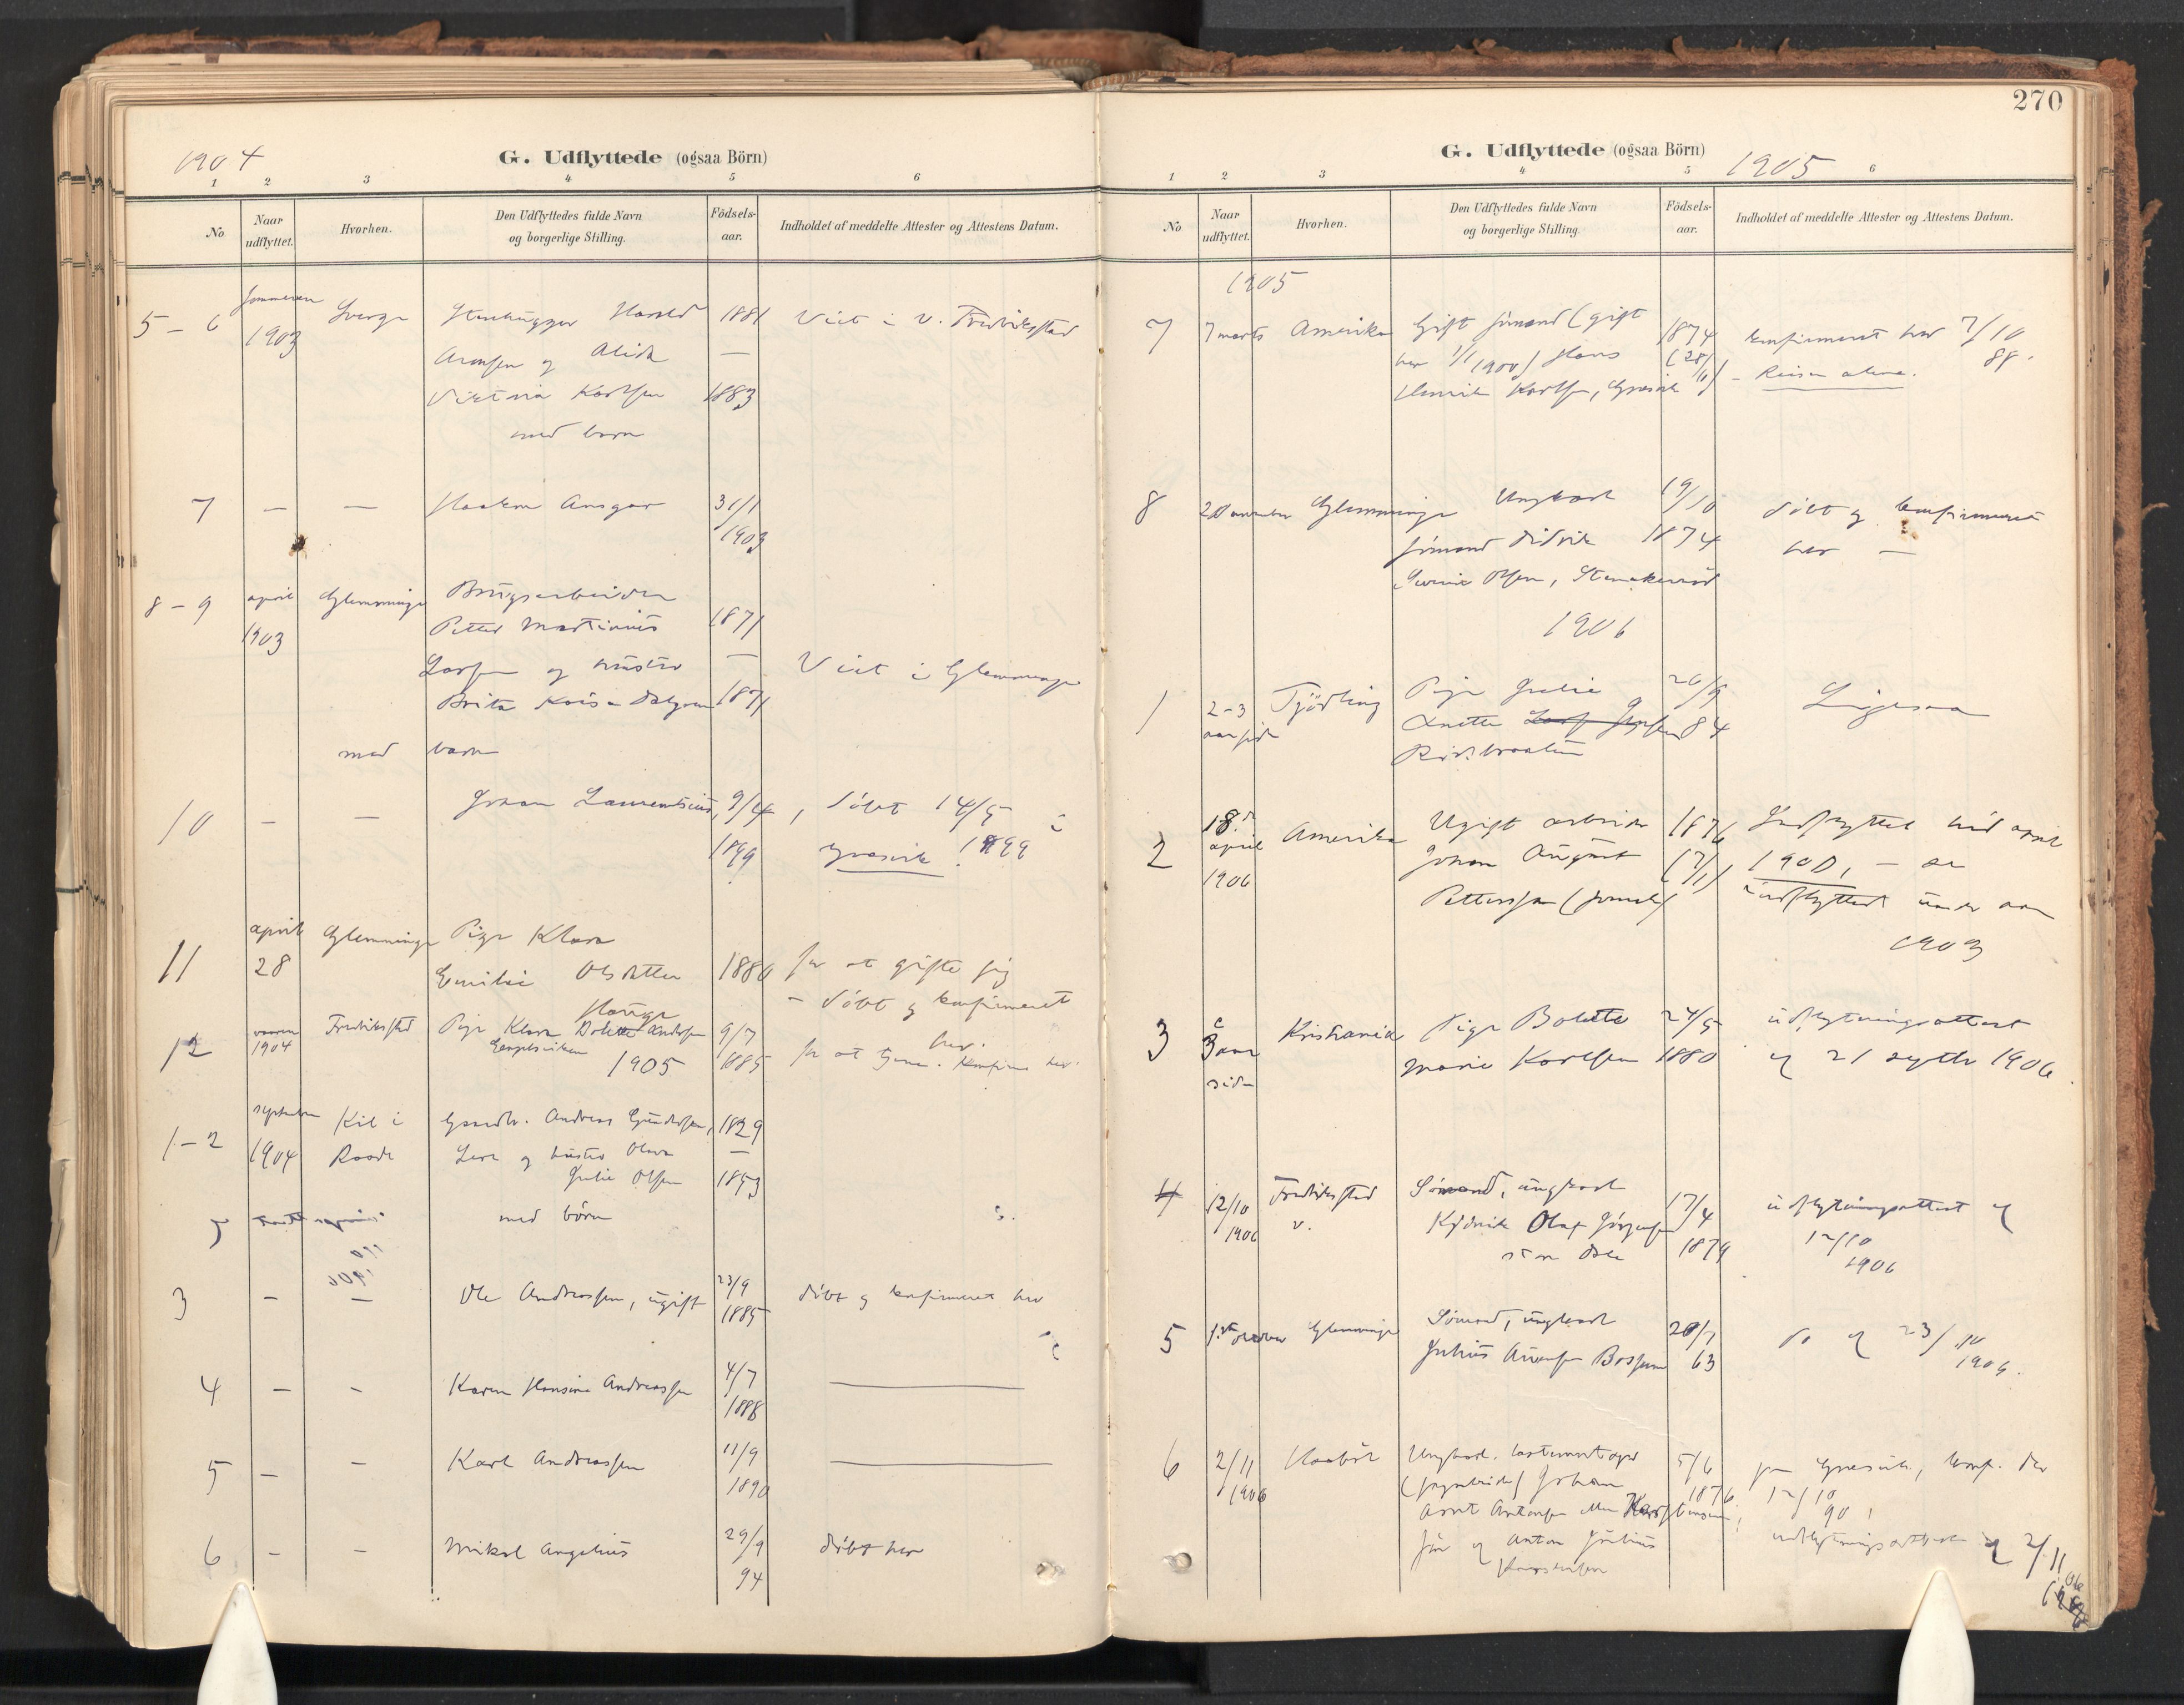 1904
G. Udflyttede (ogsaa Börn)
1 2 3 4 5 6
No
Naar udflyttet.
Hvorhen.
Den Udflyttedes fulde Navn og borgerlige Stilling.
Födsels-aar.
Indholdet af meddelte Attester og Attestens Datum.
5-6 Sommeren 1903 Sverge Stenhugger Harald 1881 Viet i V. Fredrikstad
Aronsen og Alida —
Victoria Karlsen 1883
med barn
7 — — Haakon Ansgar 31/1
1903
8-9 april Glemminge Brugsarbeider
1903 Petter Martinius 1871
Larsen og hustru — Viet i Glemminge
Brita Kaisa 1871
med barn
10 — — Johan Laurentius, 9/4, döbt 14/5 i
1899 Gresvik 1899
11 april Glemminge Pige Klara
28 Emilie Olsdatter 1880 for at gifte sig
Hauge - döbt og konfirmeret
her.
12 vaaren Fredrikstad Pige Klara Bolette Andersen 9/7
1904 1885 for at tjene. Konfirm. her.
1905
1-2 september Kil i Gaardbr. Andreas Gundersen, 1829
1904 Raade Lere og hustru Olava —
Julie Olsen 1853
med börn
3 — — Ole Andreassen, ugift 23/9 döbt og konfirmeret her
1885
4 — - Karen Hansine Andreassen 4/7 —
1888
5 — - Karl Andreassen 11/9 —
1890
6 - - Mikal Angelius 29/9 döbt her
94
270
G. Udflyttede (ogsaa Börn)
1905
1 2 3 4 5 6
No
Naar udflyttet.
Hvorhen.
Den Udflyttedes fulde Navn og borgerlige Stilling.
Födsels-aar.
Indholdet af meddelte Attester og Attestens Datum.
1905
7 7 marts Amerika Gift sömand (gift 1874 konfirmeret her 7/10
her 1/1 1900) Hans (28/6) 88.
Henrik Karlsen, Gresvik - Reiser alene.
8 Glemminge Ungkarl 19/10 döbt og konfirmeret
sömand Didrik 1874 her —
Olsen,
1906
1 2-3 Tjödling Pige Julie 26/9
aar siden Anette 84
Risbraaten
2 18de Amerika Ugift arbeider 1876 Indflyttet hid april
april Johan August (7/1) 1900, - se
1906 Pettersson (svensk) indflyttet under aar
1903
3 c Kristiania Pige Bolette 24/5 udflytningsattest
3 aar Marie Karlsen 1880 af 21 septbr 1906.
siden
4 12/10 Fredrikstad Sömand, ungkarl 17/4 udflytningsattest af
1906 v. Olaf Jörgensen 1879 12/10
1906
5 Glemminge Sömand, ungkarl 20/7 do af 23/10
Julius 63 1906.
6 2/11 Haaböl Ungkarl. 5/6 fra Gresvik, konf. der
1906 Johan 1876 12/10
Arnt Antonsen eller Karstensen, 90,
sön af Anton Julius udflytningsattest af 2/11
Karstensen